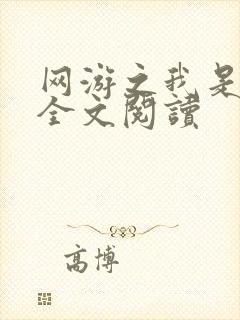 网游之我是
全文閱讀
高博